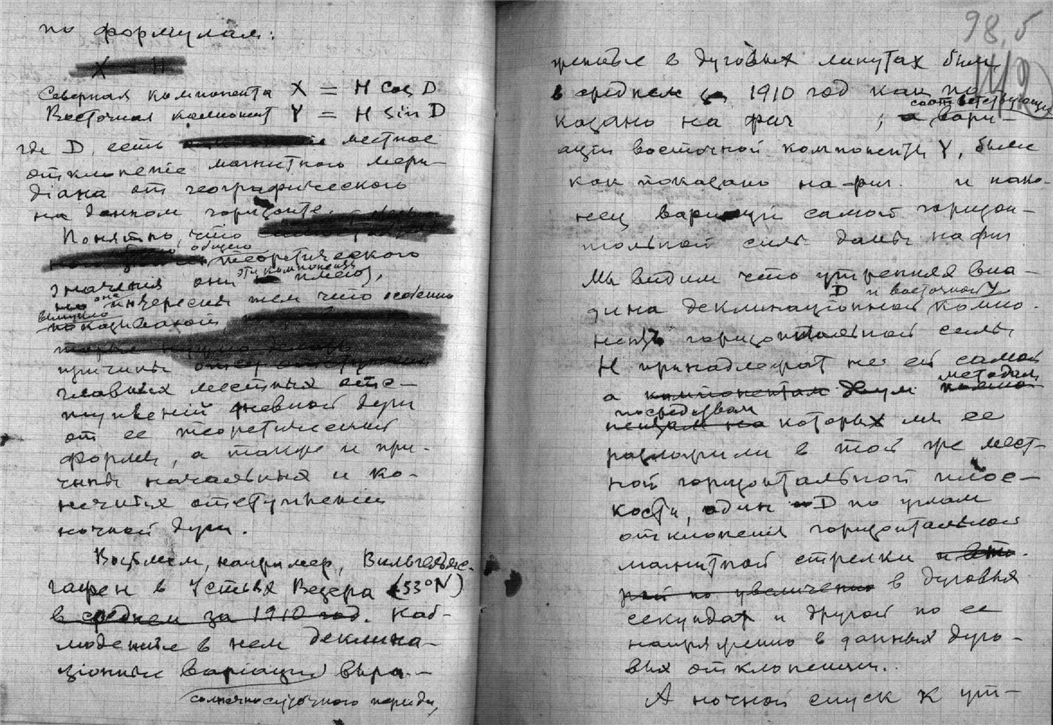 по формулам:
X = H
Северная компонента X = H cos D
Восточная компонент Y = H sin D
где D, есть местное
отклонение магнитного мери-
дiана от географического
на данном горизонте.
Понятно, что
общего теоретического
значения они эти компоненты не имеют,
но они интересны тем что особенно
выпукло показывают
причины
главных местных отс-
тупленiй дневной дуги
от ее теоретической
формы, а также и при-
чины начальных и ко-
нечных отступленiй
ночной дуги.
Возьмем, например, Вильгельмс-
гафен в Устья Везера (53°N)
в среднем за 1910 год. Наб-
людения в нем деклина-
цiонныя варiации выра-
солнечносуточного периода,
98,б
женные в дуговых минутах были
в среднем за 1910 год как по
соответствующия
казано на фиг ; а вари-
ации восточной компоненты Y, были
как показано на фиг. и нако-
нец вариации самой горизон-
тальной силы даны на фиг
Мы видим что утренняя впа-
D и восточной Y
дина деклинационной компо-
ненты горизонтальной силы
H принадлежат не ей самой
методам
а компонентам двум
посредством
которых мы ее
разложили в той же мест-
ной горизонтальной плос-
кости, один D по углам
отклонения горизонтальной
магнитной стрелки
по увеличению в дуговых
секундах и другой по ее
напряжению в данных дуго-
вых отклонениях.
А ночной спуск к ут-